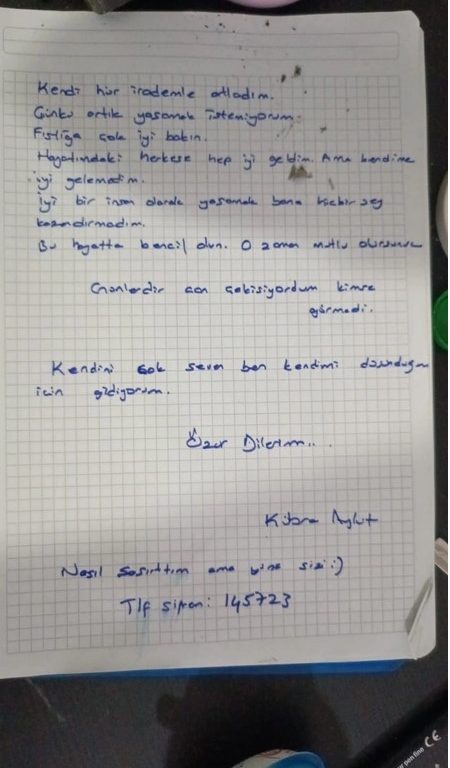 Kendi hür irademle atladım.
Çünkü artık yaşamak istemiyorum.
Fıstığa çok iyi bakın.
Hayatımdaki herkese hep iyi geldim. Ama kendime
iyi gelemedim.
İyi bir insan olarak yaşamak bana hiçbir şey
kazandırmadım.
Bu hayatta bencil olun. O zaman mutlu olursunuz
Günlerdir can çekişiyordum kimse
görmedi.
Kendimi çok seven ben kendimi düşündüğüm
için gidiyorum.
Özür Dilerim...
Kübra Aykut
Nasıl şaşırttım ama yine sizi :)
Tlf şifrem: 145723
CE